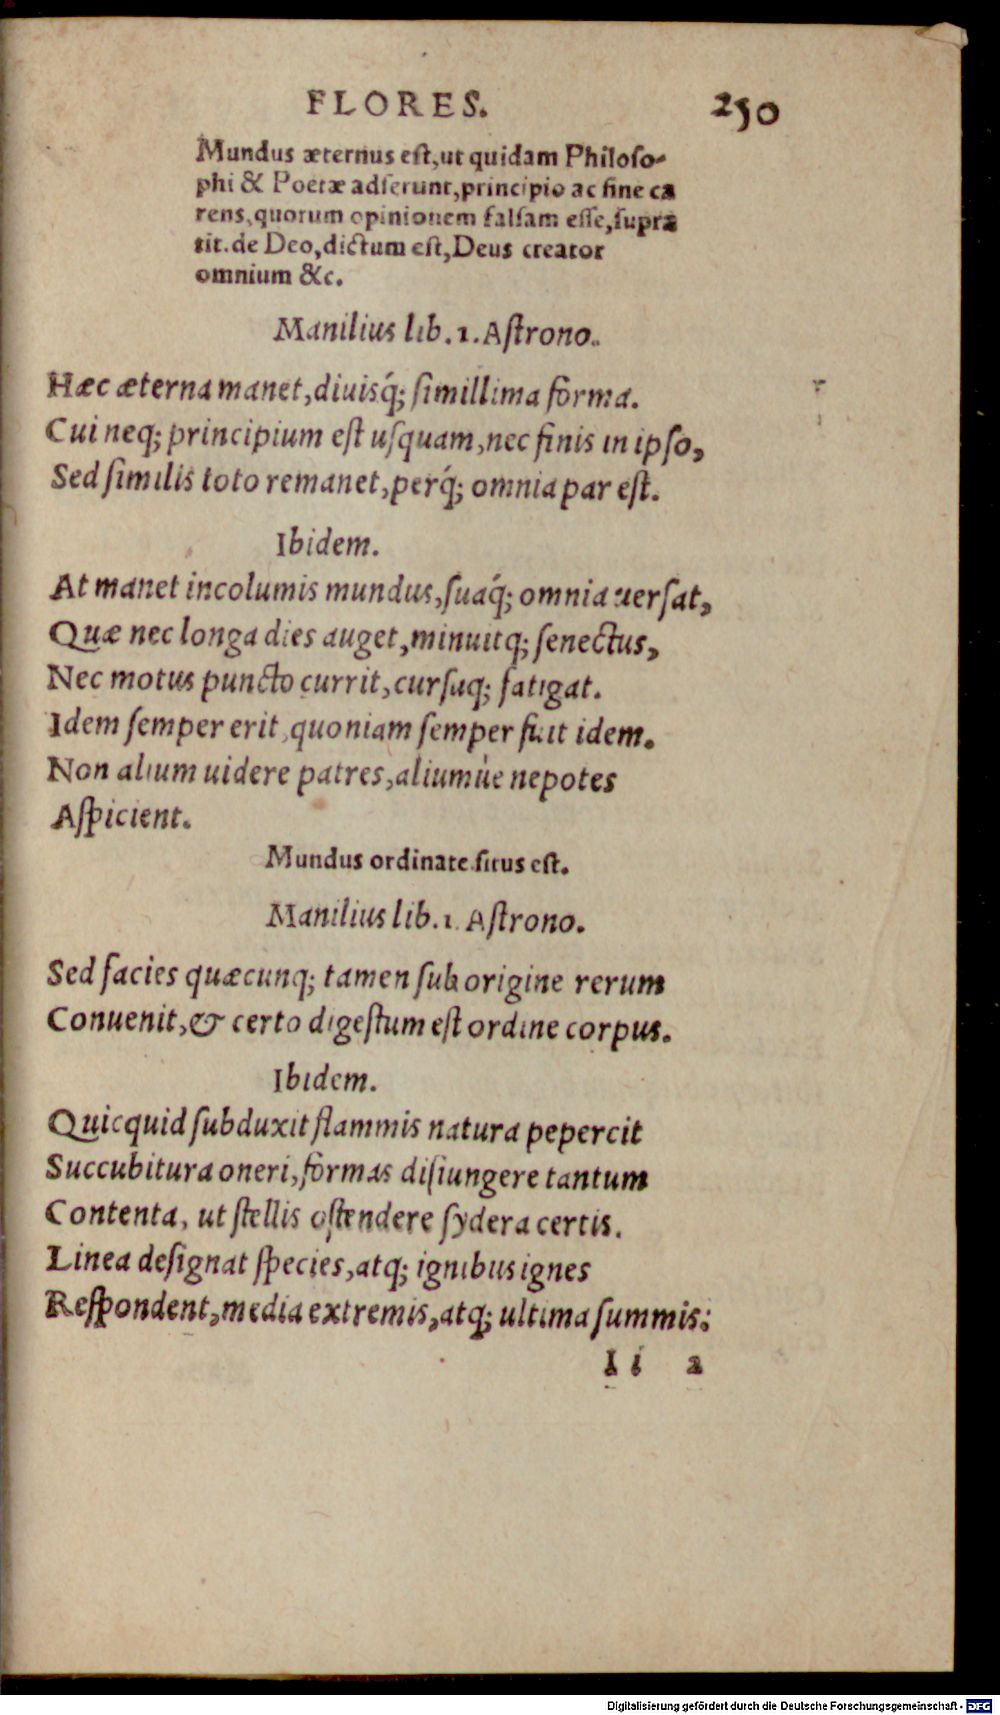 FLORES. 250
Mundus æternus eſt,ut quidam Philoſo-
phi & Poetæ adſerunt,principio ac fine ca
rens,quorum opinionem falſam eſſe,ſupra
tit.de Deo,dictum eſt,Deus creator
omnium &c.
Manilius lib.1.Aſtrono.
Hæc æterna manet,diuisq́; ſimillima forma.
Cui neq; principium eſt uſquam,nec finis in ipſo,
Sed ſimilis toto remanet,perq́; omnia par eſt.
Ibidem.
At manet incolumis mundus,ſuaq́; omnia uerſat,
Quæ nec longa dies auget,minuitq; ſenectus,
Nec motus puncto currit,curſuq; fatigat.
Idem ſemper erit,quoniam ſemper fuit idem.
Non alium uidere patres,aliumùe nepotes
Aſpicient.
Mundus ordinate ſitus eſt.
Manilius lib.1.Aſtrono.
Sed facies quæcunq; tamen ſub origine rerum
Conuenit,& certo digeſtum eſt ordine corpus.
Ibidem.
Quicquid ſubduxit flammis natura pepercit
Succubitura oneri,formas diſiungere tantum
Contenta, ut ſtellis oſtendere ſydera certis.
Linea deſignat ſpecies,atq; ignibus ignes
Reſpondent,media extremis,atq; ultima ſummis:
I i 2
Digitalisierung gefördert durch die Deutsche Forschungsgemeinschaft - DFG